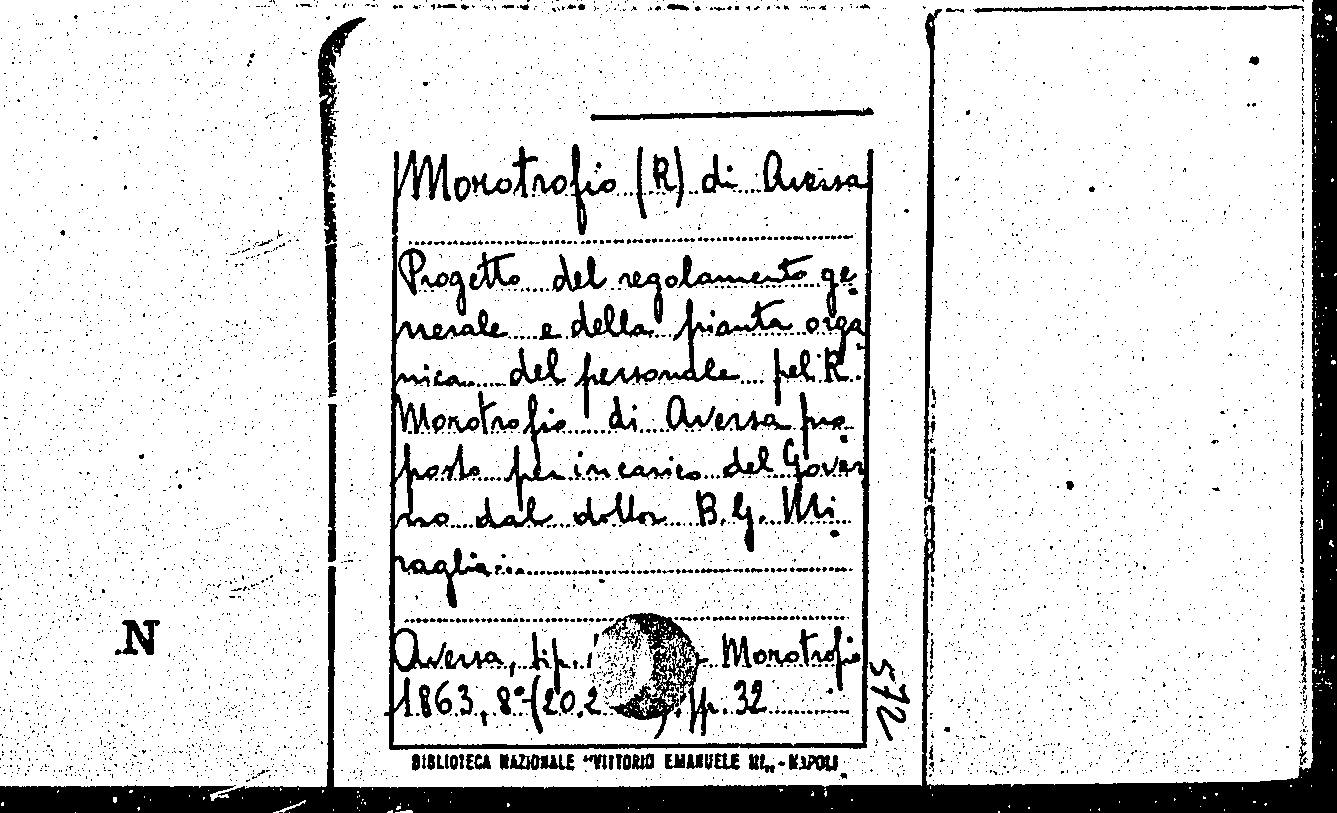 Morotrofio (R) di Aversa
Progetto del regolamento ge-
nerale e della pianta orga-
nica del personale pel R.
Morotrofio di Aversa pro-
posto per incarico del Gover
no dal dottor B. G. Mi-
raglia...
Aversa, tip. Morotrofio
1863, 8° (20.2 ) pp. 32
572
N
BIBLIOTECA NAZIONALE "VITTORIO EMANUELE III„ - NAPOLI